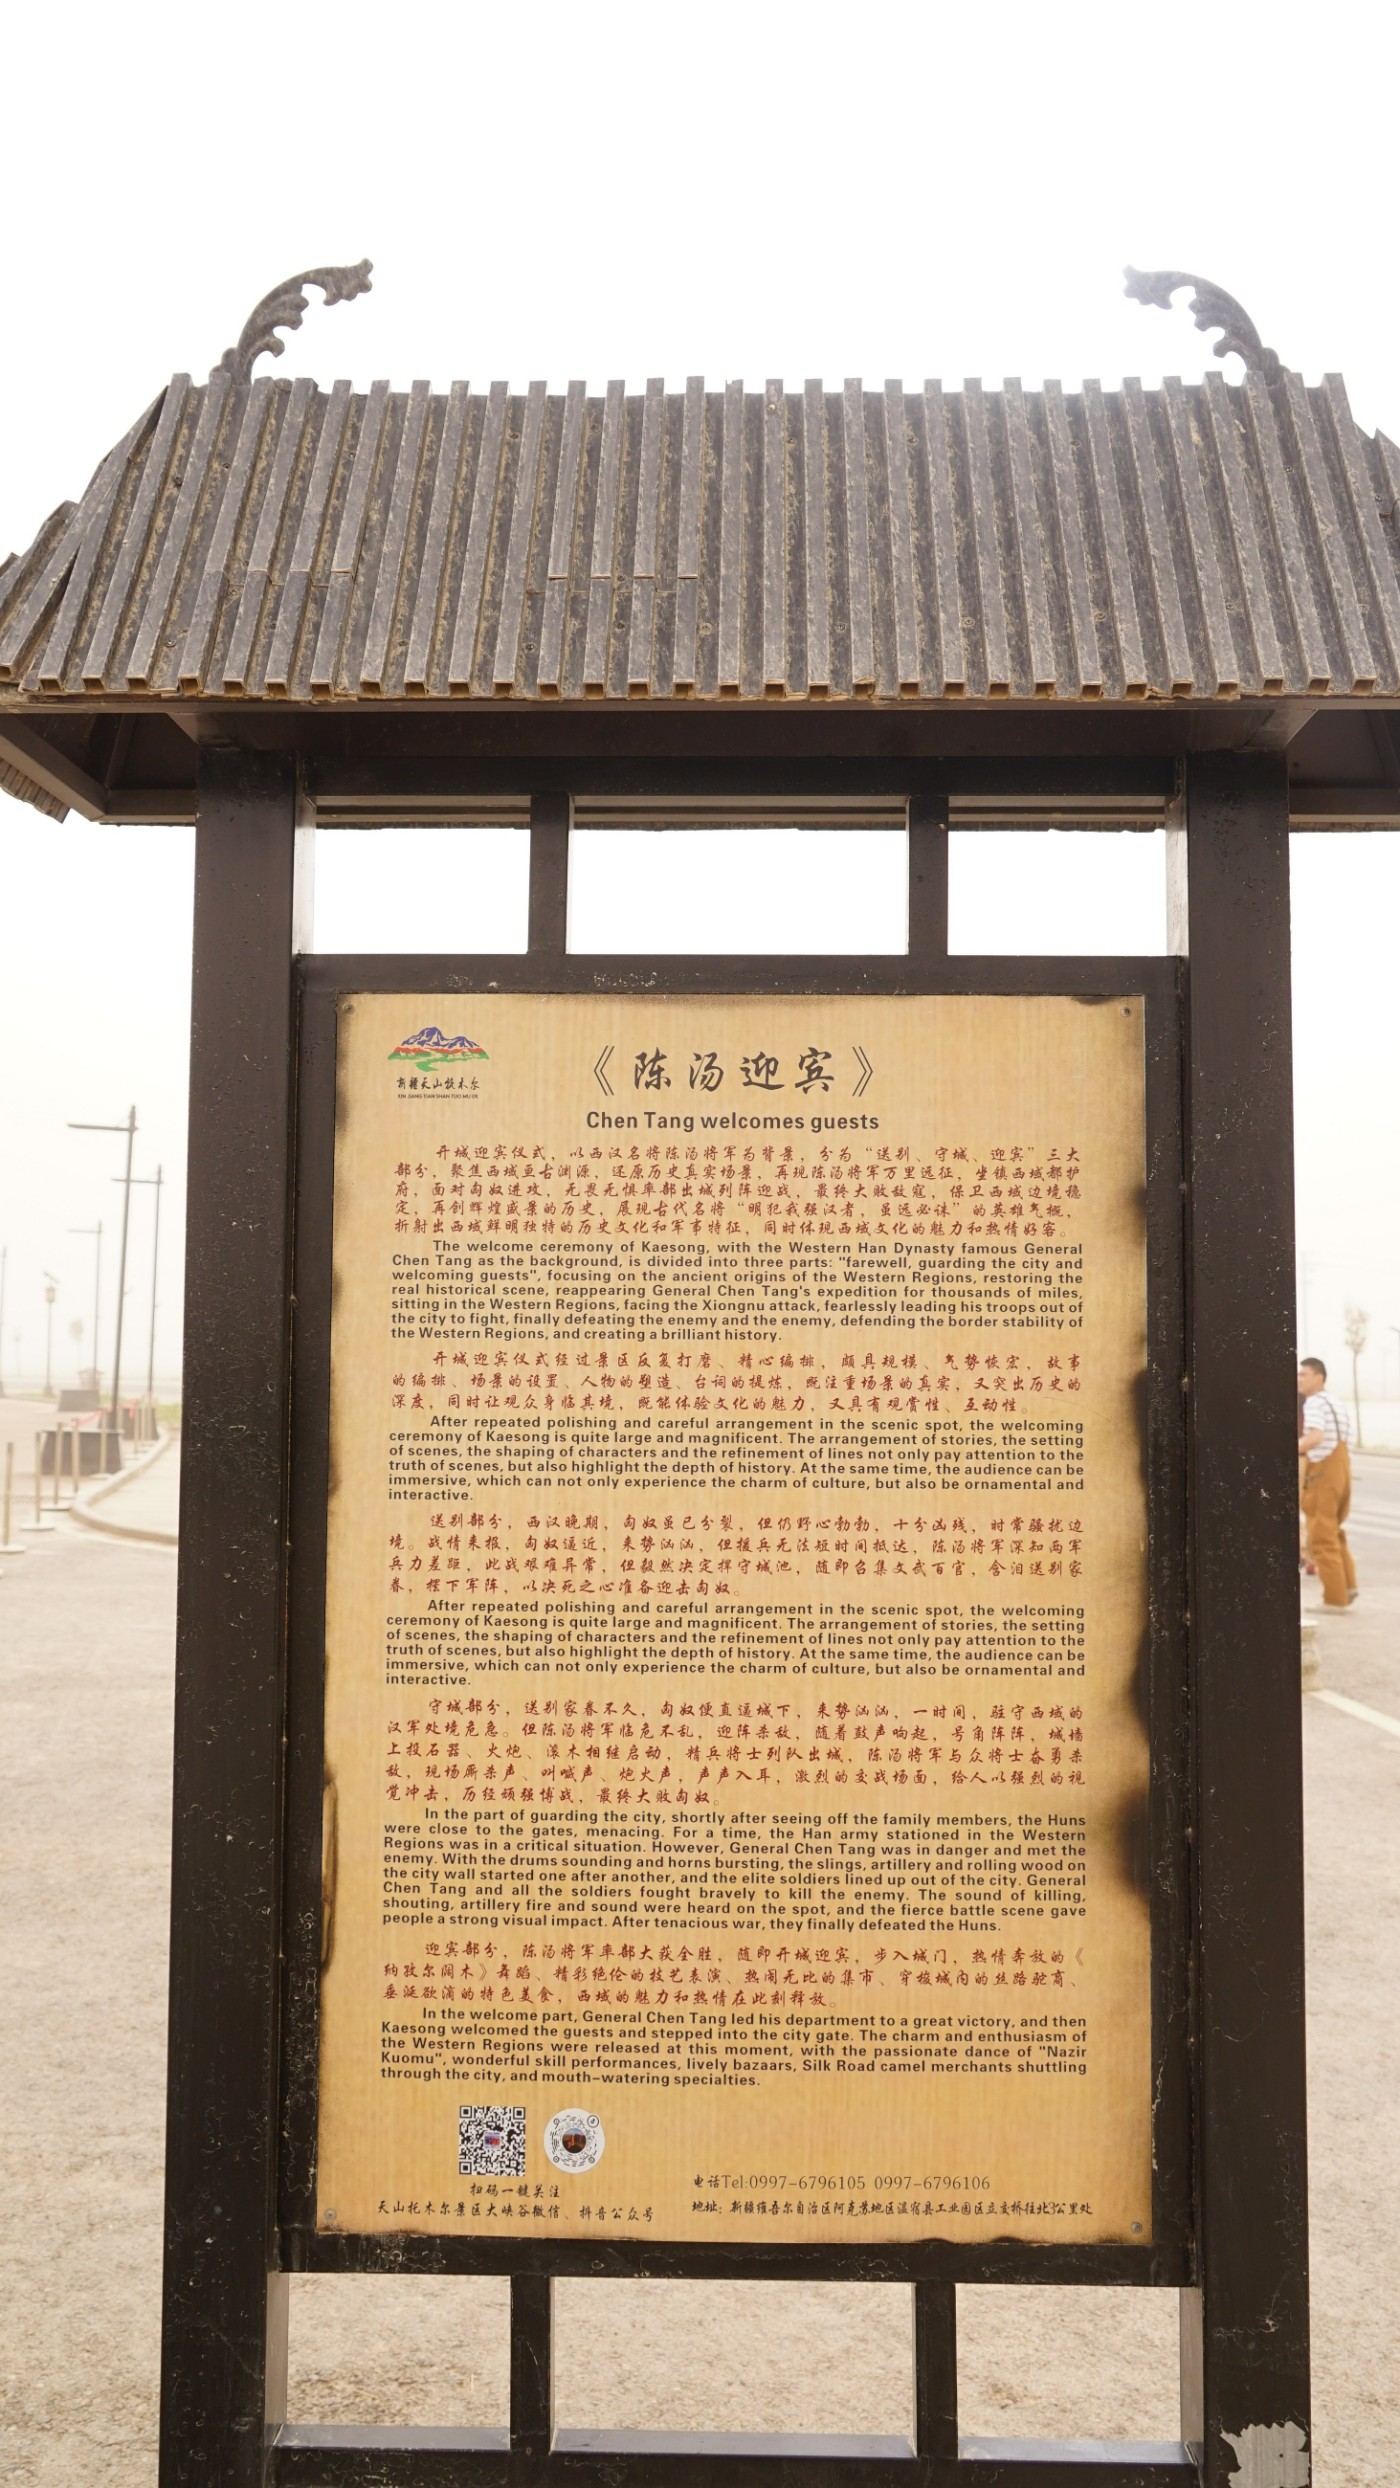 新疆天山托木尔
XIN JIANG TIAN SHAN TUO MU ER
《陈汤迎宾》
Chen Tang welcomes guests
开城迎宾仪式，以西汉名将陈汤将军为背景，分为“送别、守城、迎宾”三大
部分，聚焦西域亘古渊源，还原历史真实场景，再现陈汤将军万里远征，坐镇西域都护
府，面对匈奴进攻，无畏无惧率部出城列阵迎战，最终大败敌寇，保卫西域边境稳
定，再创辉煌盛景的历史，展现古代名将“明犯我强汉者，虽远必诛”的英雄气概，
折射出西域鲜明独特的历史文化和军事特征，同时体现西域文化的魅力和热情好客。
The welcome ceremony of Kaesong, with the Western Han Dynasty famous General
Chen Tang as the background, is divided into three parts: "farewell, guarding the city and
welcoming guests", focusing on the ancient origins of the Western Regions, restoring the
real historical scene, reappearing General Chen Tang's expedition for thousands of miles,
sitting in the Western Regions, facing the Xiongnu attack, fearlessly leading his troops out of
the city to fight, finally defeating the enemy and the enemy, defending the border stability of
the Western Regions, and creating a brilliant history.
开城迎宾仪式经过景区反复打磨、精心编排，颇具规模、气势恢宏，故事
的编排、场景的设置、人物的塑造、台词的提炼，既注重场景的真实，又突出历史的
深度，同时让观众身临其境，既能体验文化的魅力，又具有观赏性、互动性。
After repeated polishing and careful arrangement in the scenic spot, the welcoming
ceremony of Kaesong is quite large and magnificent. The arrangement of stories, the setting
of scenes, the shaping of characters and the refinement of lines not only pay attention to the
truth of scenes, but also highlight the depth of history. At the same time, the audience can be
immersive, which can not only experience the charm of culture, but also be ornamental and
interactive.
送别部分，西汉晚期，匈奴虽已分裂，但仍野心勃勃，十分凶残，时常骚扰边
境。战情来报，匈奴逼近，来势汹汹，但援兵无法短时间抵达，陈汤将军深知两军
兵力差距，此战艰难异常，但毅然决定捍守城池，随即召集文武百官，含泪送别家
眷，摆下军阵，以决死之心准备迎击匈奴。
After repeated polishing and careful arrangement in the scenic spot, the welcoming
ceremony of Kaesong is quite large and magnificent. The arrangement of stories, the setting
of scenes, the shaping of characters and the refinement of lines not only pay attention to the
truth of scenes, but also highlight the depth of history. At the same time, the audience can be
immersive, which can not only experience the charm of culture, but also be ornamental and
interactive.
守城部分，送别家眷不久，匈奴便直逼城下，来势汹汹，一时间，驻守西域的
汉军处境危急。但陈汤将军临危不乱，迎阵杀敌，随着鼓声响起，号角阵阵，城墙
上投石器、火炮、滚木相继启动，精兵将士列队出城，陈汤将军与众将士奋勇杀
敌，现场厮杀声、叫喊声、炮火声，声声入耳，激烈的交战场面，给人以强烈的视
觉冲击，历经顽强博战，最终大败匈奴。
In the part of guarding the city, shortly after seeing off the family members, the Huns
were close to the gates, menacing. For a time, the Han army stationed in the Western
Regions was in a critical situation. However, General Chen Tang was in danger and met the
enemy. With the drums sounding and horns bursting, the slings, artillery and rolling wood on
the city wall started one after another, and the elite soldiers lined up out of the city. General
Chen Tang and all the soldiers fought bravely to kill the enemy. The sound of killing,
shouting, artillery fire and sound were heard on the spot, and the fierce battle scene gave
people a strong visual impact. After tenacious war, they finally defeated the Huns.
迎宾部分，陈汤将军率部大获全胜，随即开城迎宾，步入城门，热情奔放的《
纳孜尔阔木》舞蹈、精彩绝伦的技艺表演、热闹无比的集市、穿梭城内的丝路驼商、
垂涎欲滴的特色美食，西域的魅力和热情在此刻释放。
In the welcome part, General Chen Tang led his department to a great victory, and then
Kaesong welcomed the guests and stepped into the city gate. The charm and enthusiasm of
the Western Regions were released at this moment, with the passionate dance of "Nazir
Kuomu", wonderful skill performances, lively bazaars, Silk Road camel merchants shuttling
through the city, and mouth-watering specialties.
扫码一键关注
天山托木尔景区大峡谷微信、抖音公众号
电话Tel:0997-6796105 0997-6796106
地址：新疆维吾尔自治区阿克苏地区温宿县工业园区立交桥往北3公里处